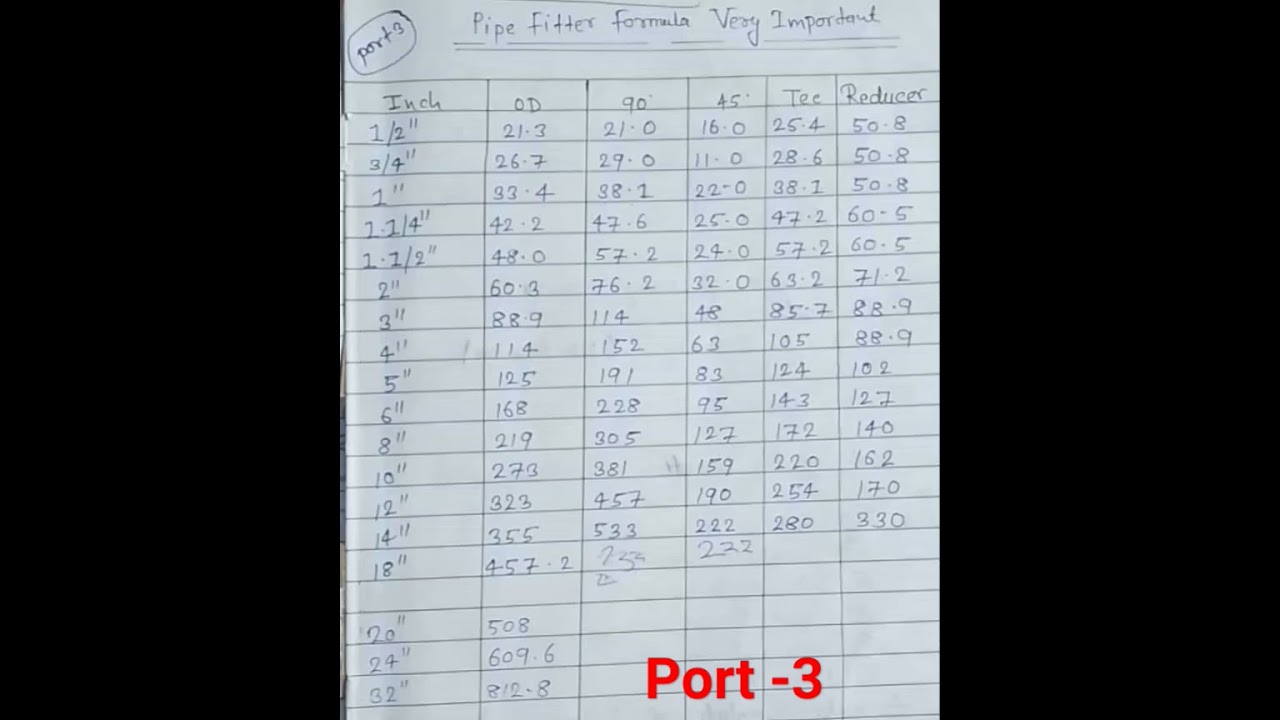 Port-3
Pipe Fitter Formula Very Important
Inch OD 90° 45° Tee Reducer
1/2" 21.3 21.0 16.0 25.4 50.8
3/4" 26.7 29.0 11.0 28.6 50.8
1" 33.4 38.1 22-0 38.1 50.8
1.1/4" 42.2 47.6 25.0 47.2 60-5
1.1/2" 48.0 57.2 24.0 57.2 60.5
2" 60.3 76.2 32.0 63.2 71.2
3" 88.9 114 48 85.7 88.9
4" 114 152 63 105 88.9
5" 125 191 83 124 102
6" 168 228 95 143 127
8" 219 305 127 172 140
10" 273 381 159 220 162
12" 323 457 190 254 170
14" 355 533 222 280 330
18" 457.2 222
20" 508
24" 609.6
32" 812.8
Port -3